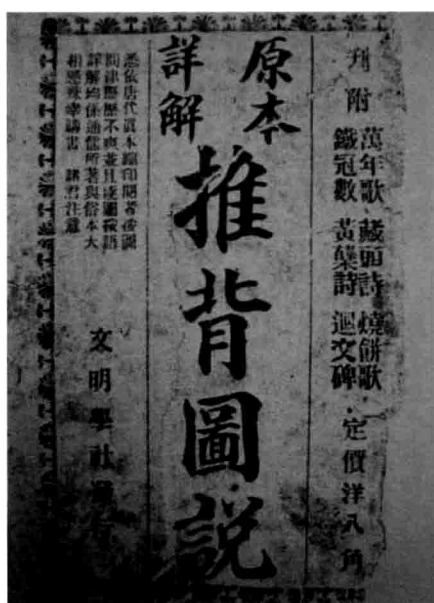 刊附
萬年歌．藏頭詩．燒餅歌．
鐵冠數．黃蘗詩．迴文碑．定價洋八角
原本
詳解
推背圖說
憑依唐代眞本繪印閱者按圖
問津歷歷不爽並且逐圖
詳解均係通儒所著與俗本大
相懸殊幸購書諸君注意
文明學社